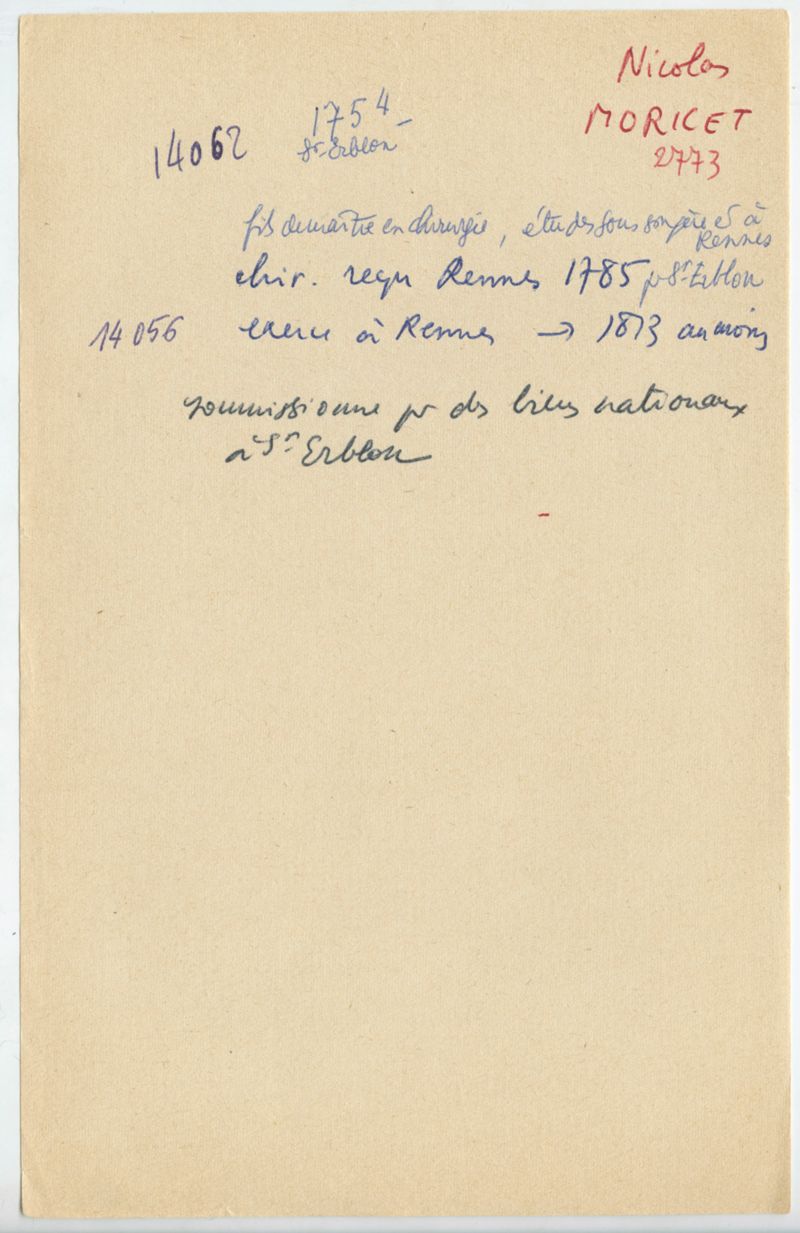 Nicolas
MORICET
2773
14062 1754-
St-Erblon
fils de maître en chirurgie, études sous son père et à
Rennes
chir. reçu Rennes 1785 pr St-Erblon
14056 exerce à Rennes → 1813 au moins
soumissionne pr des biens nationaux
à St Erblon
-